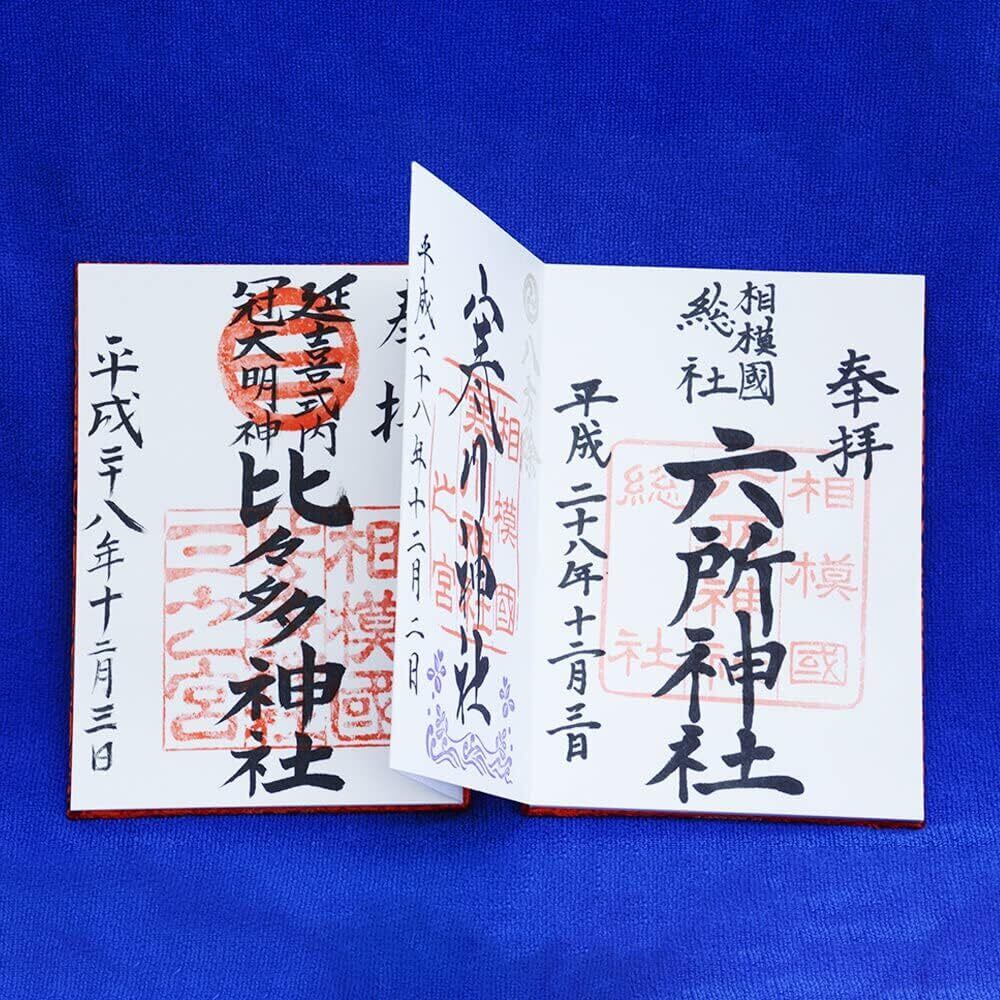 奉拝
相模國
総社
六所神社
平成二十八年十二月三日
相模國
総社
寒川神社
平成二十八年十二月二日
相模國
一之宮
奉拝
延喜式内
冠大明神
比々多神社
平成二十八年十二月三日
相模國
三之宮